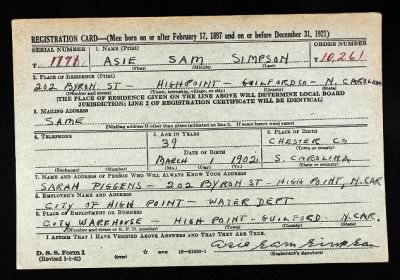 REGISTRATION CARD—(Men born on or after February 17, 1897 and on or before December 31, 1921)
SERIAL NUMBER 1. NAME (Print) ORDER NUMBER
1171 ASIE SAM SIMPSON 10,261
(First) (Middle) (Last)
2. PLACE OF RESIDENCE (Print)
202 BYRON ST - HIGHPOINT - GUILFORD CO - N. CAROLINA
(Number and street) (Town, township, village, or city) (County) (State)
[THE PLACE OF RESIDENCE GIVEN ON THE LINE ABOVE WILL DETERMINE LOCAL BOARD
JURISDICTION; LINE 2 OF REGISTRATION CERTIFICATE WILL BE IDENTICAL]
3. MAILING ADDRESS
SAME
[Mailing address if other than place indicated on line 2. If same insert word same]
4. TELEPHONE 5. AGE IN YEARS 6. PLACE OF BIRTH
39 CHESTER CO
DATE OF BIRTH (Town or county)
MARCH 1 1902 S. CAROLINA
(Mo.) (Day) (Yr.) (State or country)
7. NAME AND ADDRESS OF PERSON WHO WILL ALWAYS KNOW YOUR ADDRESS
SARAH PIGGENS - 202 BYRON ST - HIGH POINT, N. CAR
8. EMPLOYER'S NAME AND ADDRESS
CITY OF HIGH POINT - WATER DEPT
9. PLACE OF EMPLOYMENT OR BUSINESS
CITY WAREHOUSE - HIGH POINT - GUILFORD - N. CAR.
(Number and street or R. F. D. number) (Town) (County) (State)
I AFFIRM THAT I HAVE VERIFIED ABOVE ANSWERS AND THAT THEY ARE TRUE.
Asie Sam Simpson
D. S. S. Form 1
(over)
(Registrant's signature)